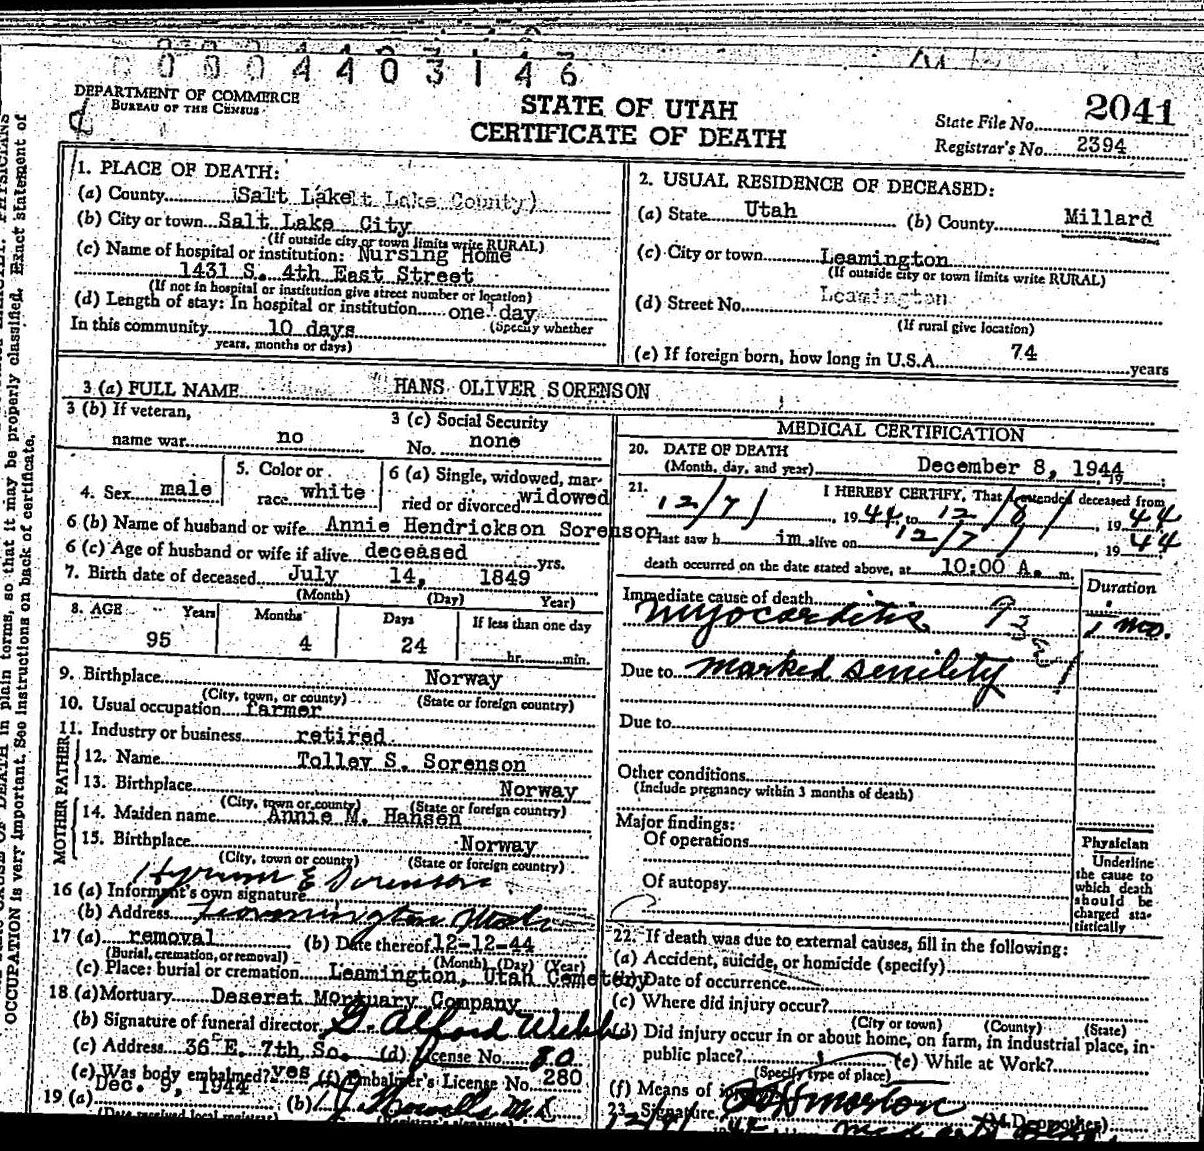 0004403146
DEPARTMENT OF COMMERCE
BUREAU OF THE CENSUS
STATE OF UTAH
CERTIFICATE OF DEATH
State File No. 2041
Registrar's No. 2394
1. PLACE OF DEATH:
(a) County Salt Lake
(b) City or town Salt Lake City
(If outside city or town limits write RURAL)
(c) Name of hospital or institution: Nursing Home
1431 S. 4th East Street
(If not in hospital or institution give street number or location)
(d) Length of stay: In hospital or institution one day
In this community 10 days (Specify whether
years, months or days)
2. USUAL RESIDENCE OF DECEASED:
(a) State Utah (b) County Millard
(c) City or town Leamington
(If outside city or town limits write RURAL)
(d) Street No. Leamington
(If rural give location)
(e) If foreign born, how long in U.S.A. 74 years
3 (a) FULL NAME HANS OLIVER SORENSON
3 (b) If veteran,
name war no
3 (c) Social Security
No. none
4. Sex male
5. Color or
race white
6 (a) Single, widowed, mar-
ried or divorced widowed
6 (b) Name of husband or wife Annie Hendrickson Sorenson
6 (c) Age of husband or wife if alive deceased yrs.
7. Birth date of deceased July 14, 1849
(Month) (Day) Year)
8. AGE Years Months Days If less than one day
95 4 24 hr. min.
9. Birthplace Norway
(City, town, or county) (State or foreign country)
10. Usual occupation farmer
11. Industry or business retired
FATHER
12. Name Tolley S. Sorenson
13. Birthplace Norway
(City, town or county) (State or foreign country)
MOTHER
14. Maiden name Annie M. Hansen
15. Birthplace Norway
(City, town or county) (State or foreign country)
16 (a) Informant's own signature Hyrum E Sorenson
(b) Address Leamington Utah
17 (a) removal (b) Date thereof 12-12-44
(Burial, cremation, or removal) (Month) (Day) (Year)
(c) Place: burial or cremation Leamington, Utah Cemetery
18 (a) Mortuary Deseret Mortuary Company
(b) Signature of funeral director G. Alford Webb
(c) Address 36 E. 7th So. (d) License No. 80
(e) Was body embalmed? yes (f) Embalmer's License No. 280
19 (a) Dec. 9, 1944 (b)
(Date received local registrar)
MEDICAL CERTIFICATION
20. DATE OF DEATH
(Month, day, and year) December 8, 1944, 19 ;
21. I HEREBY CERTIFY, That I attended deceased from
12/7/, 1944, to 12/8/, 1944
I last saw him alive on 12/7/, 1944
death occurred on the date stated above, at 10:00 A. m.
Immediate cause of death
Duration
myocarditis 1 mo.
Due to marked senility
Due to
Other conditions
(Include pregnancy within 3 months of death)
Major findings:
Of operations
Of autopsy
Physician
Underline
the cause to
which death
should be
charged sta-
tistically
22. If death was due to external causes, fill in the following:
(a) Accident, suicide, or homicide (specify)
(b) Date of occurrence
(c) Where did injury occur?
(City or town) (County) (State)
(d) Did injury occur in or about home, on farm, in industrial place, in-
public place? (e) While at Work?
(Specify type of place)
(f) Means of injury
23. Signature (M.D. or other)
OCCUPATION is very important. See instructions on back of certificate.
CAUSE OF DEATH in plain terms, so that it may be properly classified. Exact statement of